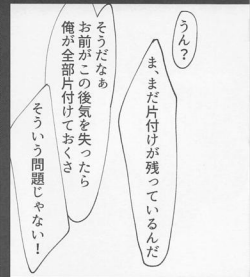 うん?
ま、まだ片付けが残っているんだ
そうだなぁ
お前がこの後気を失ったら
俺が全部片付けておくさ
そういう問題じゃない!